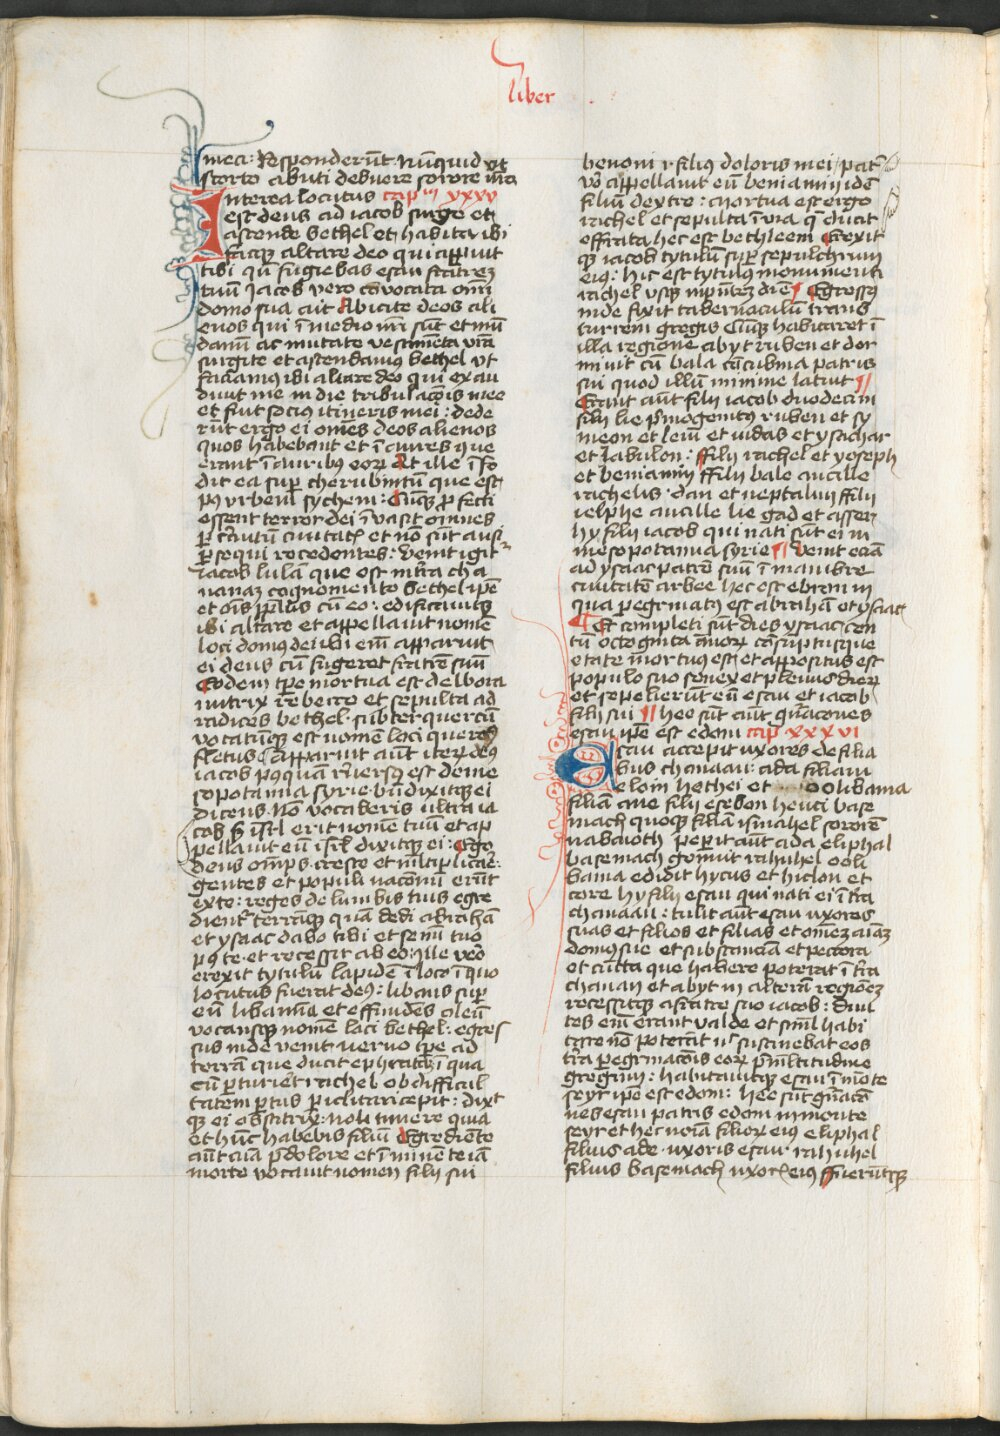 liber
mea: Responderūt Nūquid ut
scorto abuti debuere sorore nr̄a
Interea locutus capm xxxv
est deus ad iacob surge et
ascende bethel et habita ibi
facq altare deo qui apparuit
tibi qn̄ fugiebas esau fratrez
tuū Jacob vero cōvocata omī
domo sua ait Abicite deos ali
enos qui ī medio vr̄i sūt et mū
damī ac mutate vestimēta vr̄a
surgite et ascendamus bethel vt
faciamus ibi altare deo qui exau
diuit me in die tribulacōis mee
et fuit socius itineris mei: dede
rūt ergo ei omēs deos alienos
quos habebant et ī aures que
erant ī auribus eorum At ille ī fo
dit ea sup cherubintū que est
p9 vrbem sychem: Cūq p fecti
essent terror dei ī vasit omnes
p circuitū ciuitates et nō sūt ausi
p sequi recedentes: venit igit
Jacob luzā que est in tra cha
nanaz cognomento bethel ipē
et oīs ppl̄us cū eo: edificauitq
ibi altare et appellauit nomē
loci domus dei ibi em̄ apparuit
ei deus cū fugeret fratrē suū
Eodem tpe mortua est delbora
nutrix rebecce et sepulta ad
radices bethel subter quercū
vocatūq est nomē loci quercus
fletus Apparuit aūt iterū deus
iacob p9quā reuersus est de me
sopotamia syrie bn̄dixitq ei
dicens Nō vocaberis vltra ia
cob s isrl erit nomē tuū et ap
pellauit eū isrl dixitq ei: Ego
deus omps cresce et mltiplicare
gentes et populi nacionū erūt
ex te: reges de lumbis tuis egre
dient terrāq quā dedi abrahā
et ysaac dabo tibi et semī tuo
p9 te et recessit ab eo: ille vero
erexit tytulū lapidē ī loco ī quo
locutus fuerat deus: libans sup
eū libamīa et effundēs oleū
vocansq nomē loci bethel: egres
sus inde venit verno tpe ad
terrā que ducit ephratam ī qua
cū parturiet rachel ob difficul
tatem partus periclitari cepit: dixt
q ei obstetrix: noli timere quia
et hūc habebis filiū Egrediente
aūt aīa p dolore et ī minente iā
morte vocauit nomen filij sui
benoni i filius doloris mei / pat
vo appellauit eū beniamī idē
filiū dextre: Mortua est ergo
rachel et sepulta ī via q ducit
effrata hec est bethleem Erexit
q iacob tytulū sup sepulchrum
eius: hic est tytulus monumenti
rachel vsq in pn̄tez diē ¶ Egressus
inde fixit tabernaculū trans
turrem gregis Cūq habitaret ī
illa regione abijt ruben et dor
miuit cū bala cōcubina patris
sui quod illū minime latuit ¶
Erant aūt filij iacob duodecim
filij lie primogenitus ruben et sy
meon et leui et iudas et ysachar
et zabulon: ffilij rachel et yoseph
et beniamin ffilij bale ancille
rachelis dan et neptalim ffilij
zelphe ancille lie gad et asser
hy filij iacob qui nati sūt ei in
mesopotamia syrie ¶ Venit eciā
ad ysaac patrē suū ī mambre
ciuitatē arbee hec est ebron in
qua peregrinatus est abrahā et ysaac
¶ Et completi sūt dies ysaac cen
tū octoginta annorū cōsūptusque
etate mortuus est et appositus est
populo suo senex et plenus dierū
et sepelierūt eū esau et iacob
filij sui ¶ hee sūt aūt gn̄acones
esau ipē est edom cap xxxvi
Esau accepit vxores de filia
bus chanaan: ada filiam
elom hethei et oolibama
filiā ane filij esebon heuei base
mach quoq filiā ismahel sororē
nabaioth peperit aūt ada eliphal
basemach genuit rahuhel ooli
bama edidit hyeus et hielon et
core hy filij esau qui nati ei ī tra
chanaan: tulit aūt esau vxores
suas et filios et filias et omēz aīaz
domus sue et substanciā et peccora
et cūcta que habere poterat ī tra
chanan et abijt in alterā regionez
recessitq a fratre suo iacob: diui
tes em̄ erant valde et siml habi
tare nō poterāt nec sustinebat eos
tra peregrinacōis eorū p mltitudine
gregum: habitauitq esau ī mōte
seyr ipē est edom: hee sūt gn̄acō
nes esau patris edom in monte
seyr et hec noīa filiorum eius eliphal
filius ade vxoris esau rahuhel
filius basemach vxoris eius ffuerūtq